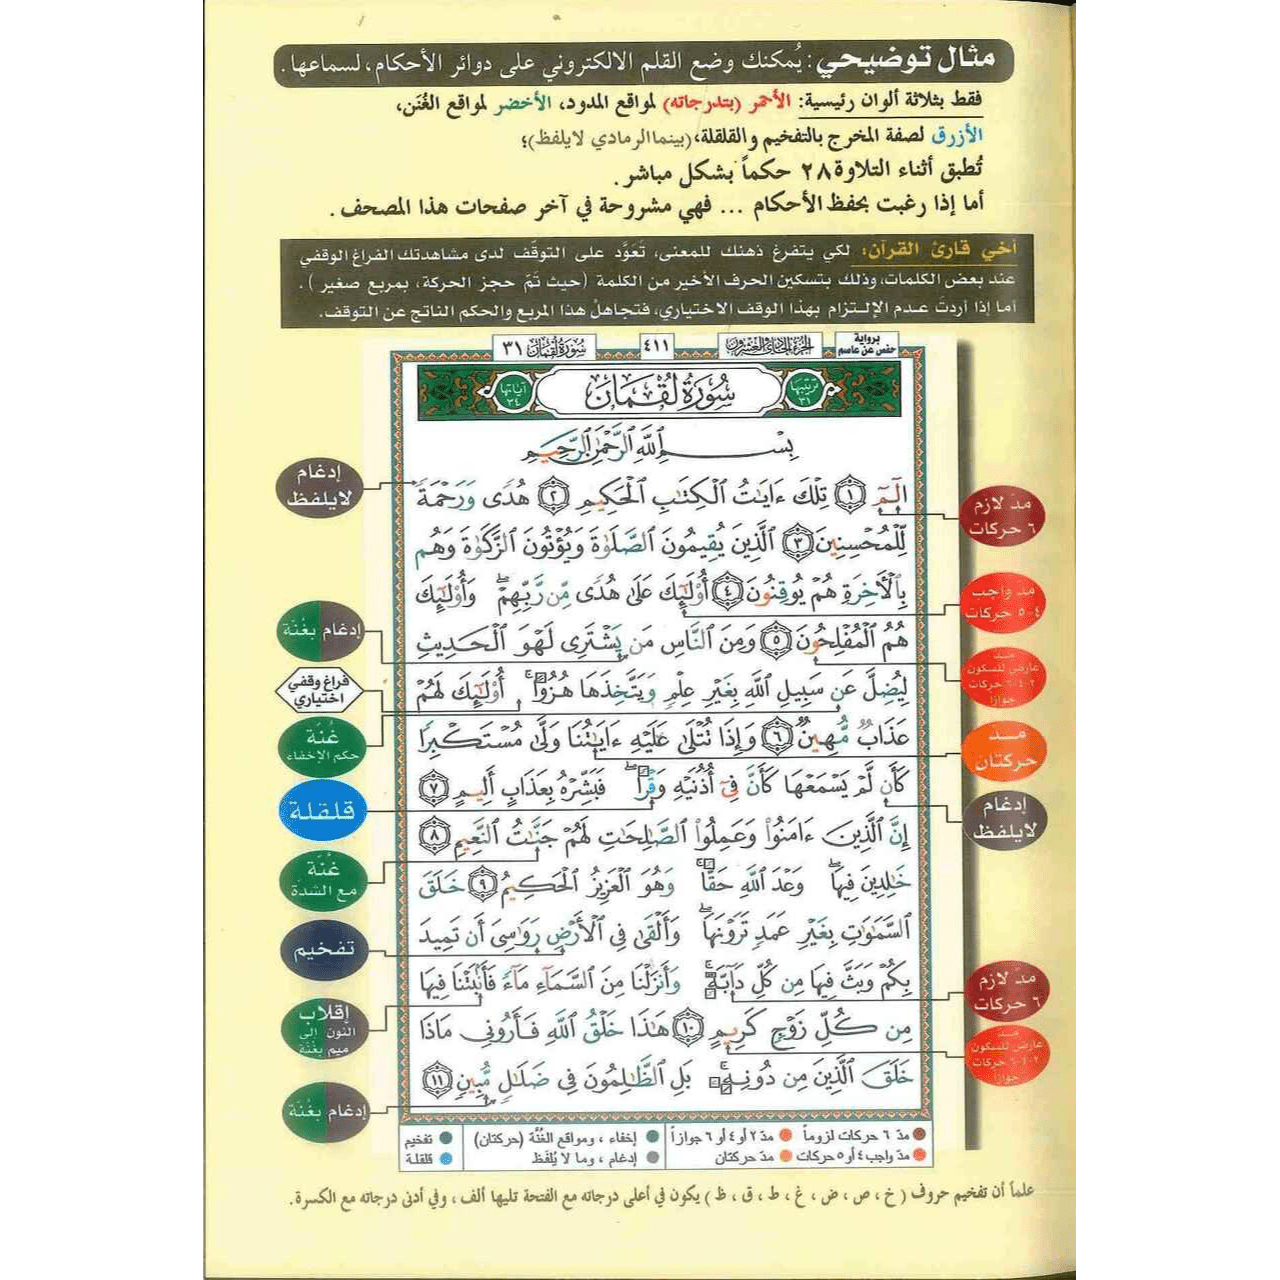 مثال توضيحي: يُمكنك وضع القلم الالكتروني على دوائر الأحكام، لسماعها.
فقط بثلاثة ألوان رئيسية: الأحمر (بتدرجاته) لمواقع المدود، الأخضر لمواقع الغُنَن،
الأزرق لصفة المخرج بالتفخيم والقلقلة، (بينما الرمادي لا يلفظ)؛
تُطبق أثناء التلاوة ٢٨ حكماً بشكل مباشر.
أما إذا رغبت بحفظ الأحكام ... فهي مشروحة في آخر صفحات هذا المصحف.
أخي قارئ القرآن: لكي يتفرغ ذهنك للمعنى، تَعَوَّد على التوقّف لدى مشاهدتك الفراغ الوقفي
عند بعض الكلمات، وذلك بتسكين الحرف الأخير من الكلمة (حيث تَمَّ حجز الحركة، بمربع صغير).
أما إذا أردتَ عدم الإلتزام بهذا الوقف الاختياري، فتجاهلْ هذا المربع والحكم الناتج عن التوقف.
برواية
حفص عن عاصم
الجزء الحادي والعشرون
٤١١
سُورَةُ لُقْمَان ٣١
ترتيبها
٣١
سُورَةُ لُقْمَان
آياتها
٣٤
بِسْمِ ٱللَّهِ ٱلرَّحْمَٰنِ ٱلرَّحِيمِ
الٓمٓ ١ تِلْكَ ءَايَٰتُ ٱلْكِتَٰبِ ٱلْحَكِيمِ ٢ هُدًى وَرَحْمَةً
لِّلْمُحْسِنِينَ ٣ ٱلَّذِينَ يُقِيمُونَ ٱلصَّلَوٰةَ وَيُؤْتُونَ ٱلزَّكَوٰةَ وَهُم
بِٱلْأَخِرَةِ هُمْ يُوقِنُونَ ٤ أُو۟لَٰٓئِكَ عَلَىٰ هُدًى مِّن رَّبِّهِمْ ۖ وَأُو۟لَٰٓئِكَ
هُمُ ٱلْمُفْلِحُونَ ٥ وَمِنَ ٱلنَّاسِ مَن يَشْتَرِى لَهْوَ ٱلْحَدِيثِ
لِيُضِلَّ عَن سَبِيلِ ٱللَّهِ بِغَيْرِ عِلْمٍ وَيَتَّخِذَهَا هُزُوًا ۚ أُو۟لَٰٓئِكَ لَهُمْ
عَذَابٌ مُّهِينٌ ٦ وَإِذَا تُتْلَىٰ عَلَيْهِ ءَايَٰتُنَا وَلَّىٰ مُسْتَكْبِرًا
كَأَن لَّمْ يَسْمَعْهَا كَأَنَّ فِىٓ أُذُنَيْهِ وَقْرًا ۖ فَبَشِّرْهُ بِعَذَابٍ أَلِيمٍ ٧
إِنَّ ٱلَّذِينَ ءَامَنُوا۟ وَعَمِلُوا۟ ٱلصَّٰلِحَٰتِ لَهُمْ جَنَّٰتُ ٱلنَّعِيمِ ٨
خَٰلِدِينَ فِيهَا ۖ وَعْدَ ٱللَّهِ حَقًّا ۚ وَهُوَ ٱلْعَزِيزُ ٱلْحَكِيمُ ٩ خَلَقَ
ٱلسَّمَٰوَٰتِ بِغَيْرِ عَمَدٍ تَرَوْنَهَا ۖ وَأَلْقَىٰ فِى ٱلْأَرْضِ رَوَٰسِىَ أَن تَمِيدَ
بِكُمْ وَبَثَّ فِيهَا مِن كُلِّ دَآبَّةٍ ۚ وَأَنزَلْنَا مِنَ ٱلسَّمَآءِ مَآءً فَأَنۢبَتْنَا فِيهَا
مِن كُلِّ زَوْجٍ كَرِيمٍ ١٠ هَٰذَا خَلْقُ ٱللَّهِ فَأَرُونِى مَاذَا
خَلَقَ ٱلَّذِينَ مِن دُونِهِۦ ۚ بَلِ ٱلظَّٰلِمُونَ فِى ضَلَٰلٍ مُّبِينٍ ١١
مدّ لازم
٦ حركات
مد واجب
٤-٥ حركات
مد
عارض للسكون
٢-٤-٦ حركات
جوازاً
مد
حركتان
إدغام
لا يلفظ
مدّ لازم
٦ حركات
مد
عارض للسكون
٢-٤-٦ حركات
جوازاً
إدغام
لا يلفظ
إدغام بغُنّة
فراغ وقفي
اختياري
غُنّة
حكم الإخفاء
قلقلة
غُنّة
مع الشدة
تفخيم
إقلاب
النون إلى
ميم بغُنّة
إدغام بغُنّة
مدّ ٦ حركات لزوماً
مدّ ٢ أو ٤ أو ٦ جوازاً
إخفاء، ومواقع الغُنّة (حركتان)
تفخيم
مدّ واجب ٤ أو ٥ حركات
مدّ حركتان
إدغام، وما لا يُلفَظ
قلقلة
علماً أن تفخيم حروف (خ، ص، ض، غ، ط، ق، ظ) يكون في أعلى درجاته مع الفتحة تليها ألف، وفي أدنى درجاته مع الكسرة.